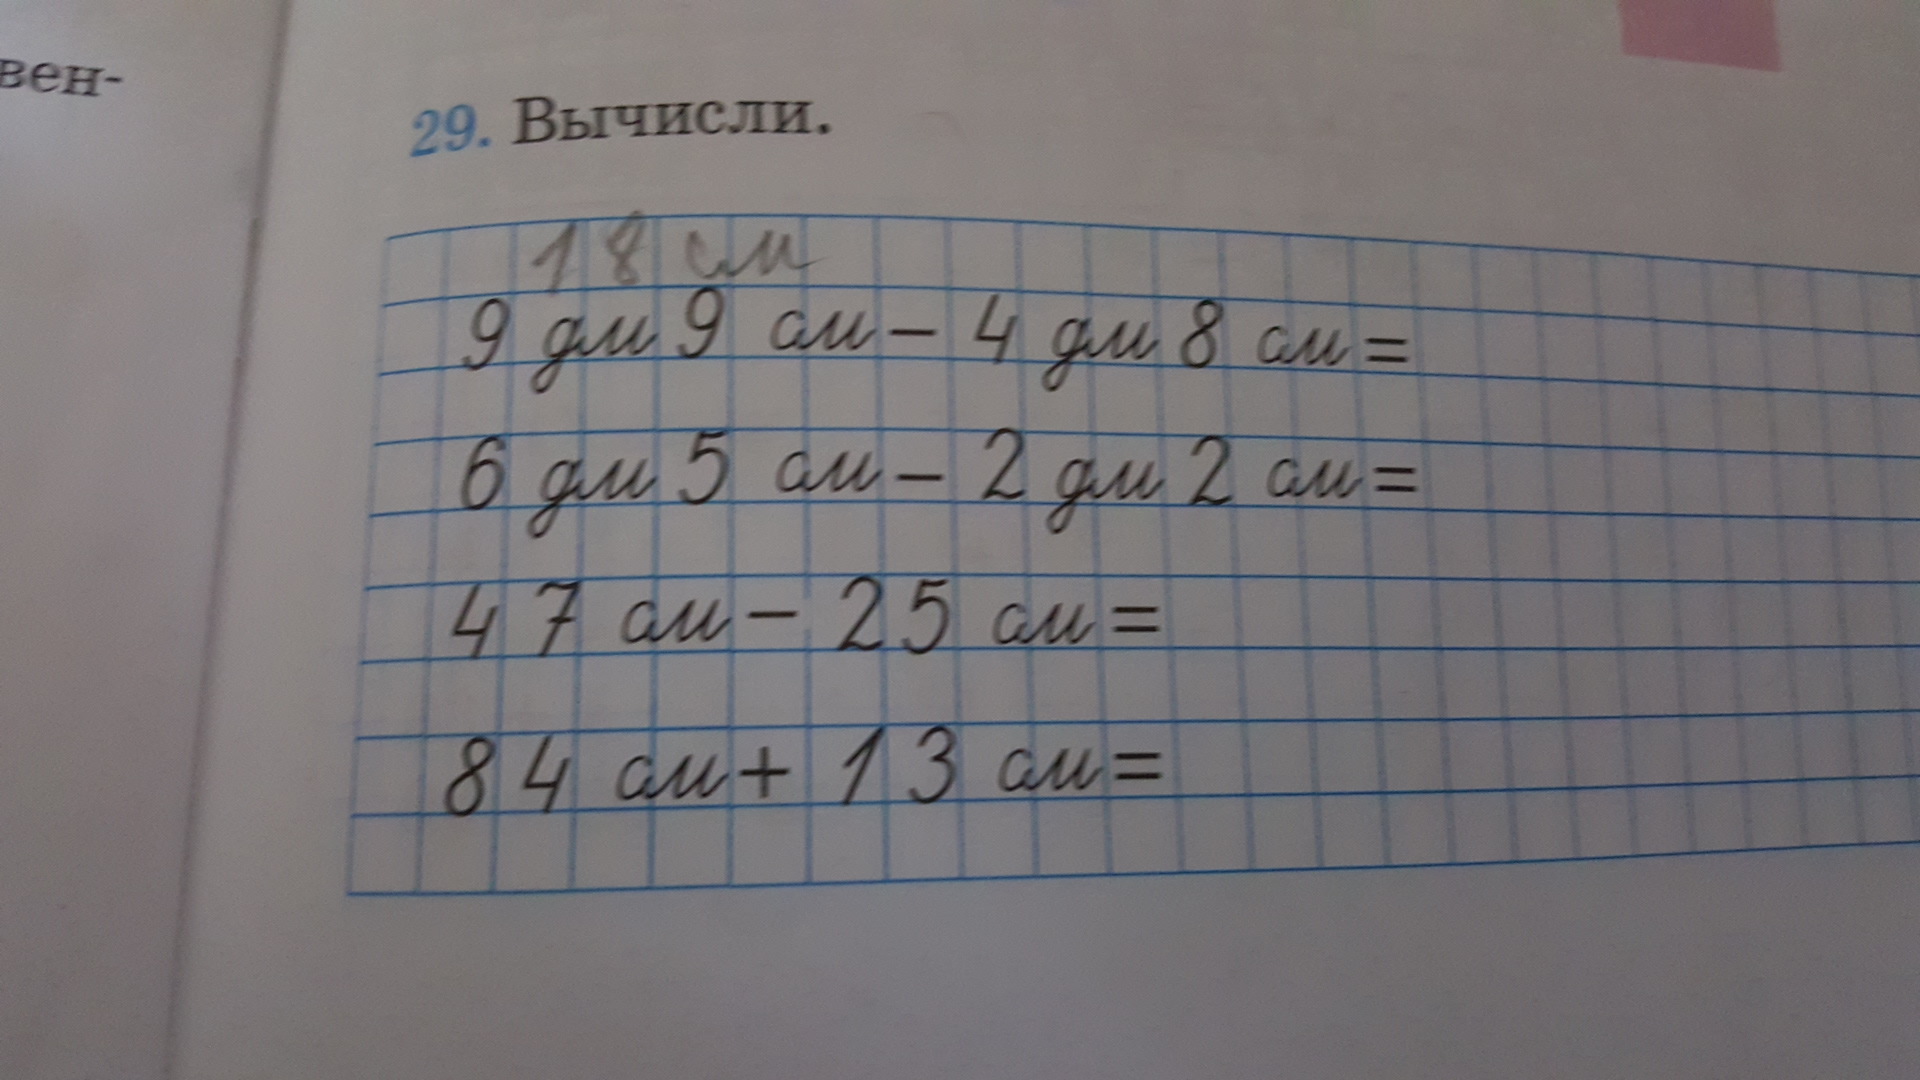 вен-
29. Вычисли.
18 см
9 дм 9 см – 4 дм 8 см =
6 дм 5 см – 2 дм 2 см =
47 см – 25 см =
84 см + 13 см =